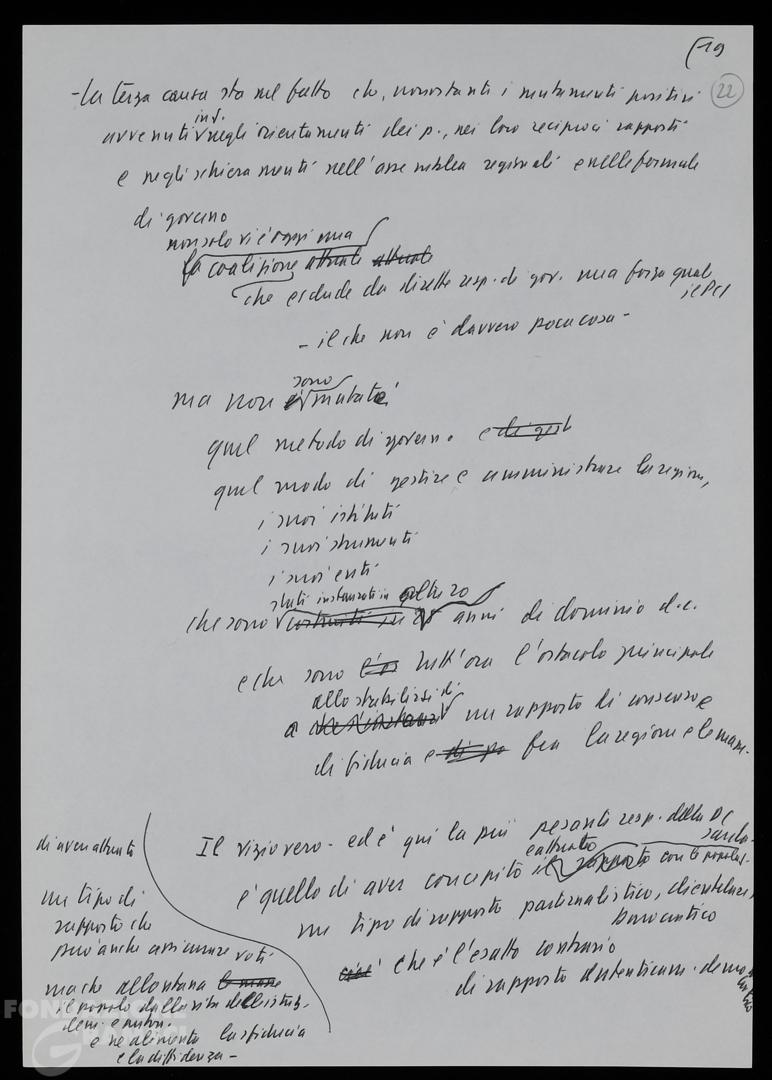 19
22
- La terza causa sta nel fatto che, nonostanti i mutamenti positivi
avvenuti negli orientamenti dei p., nei loro reciproci rapporti
e negli schieramenti nell'assemblea regionali e nelle formule
di governo
non solo vi è oggi una
la coalizione attuale attuale
che esclude da dirette resp. di gov. una forza quale
il PCI
- il che non è davvero poca cosa -
sono
ma non è mutati
quel metodo di governo e di gest
quel modo di gestire e amministrare la regione,
i suoi istituti
i suoi strumenti
i suoi enti
stati instaurati in oltre 20
che sono costruiti in anni di dominio d.c.
e che sono tutt'ora l'ostacolo principale
allo stabilirsi di
a un rapporto di consenso e
di fiducia e fra la regione e le masse.
Il vizio vero - ed è qui la più pesanti resp. della DC
sarda -
e attuato
è quello di aver concepito il rapporto con le popolaz.
un tipo di rapporto paternalistico, clientelare,
burocratico
cioè che è l'esatto contrario
di rapporto autenticam. democratico
di aver attuato
un tipo di
rapporto che
può anche assicurare voti
ma che allontana le masse
il popolo dalla vita delle istituz.
dem. e auton.
e ne alimenta la sfiducia
e la diffidenza -
FONDAZIONE
GRAMSCI